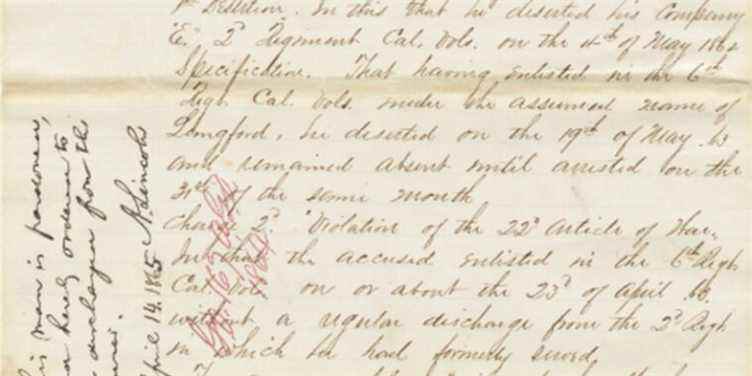 Desertion. In this that he deserted his Company
"E." 2d Regiment Cal. Vols. on the 4th of May 186
Specification. That having enlisted in the 6th
Regt. Cal. Vols. under the assumed name of
Longford, he deserted on the 19th of May 63
and remained absent until arrested on the
31st of the same month
Charge 2d. "Violation of the 22d Article of War,
In that the accused enlisted in the 6th Regt
Cal. Vols. on or about the 23d of April 63.
without a regular discharge from the 2d Regt
in which he had formerly served,
is man is pardoned,
hereby ordered to
discharged from the
April 14. 1865 A. Lincoln